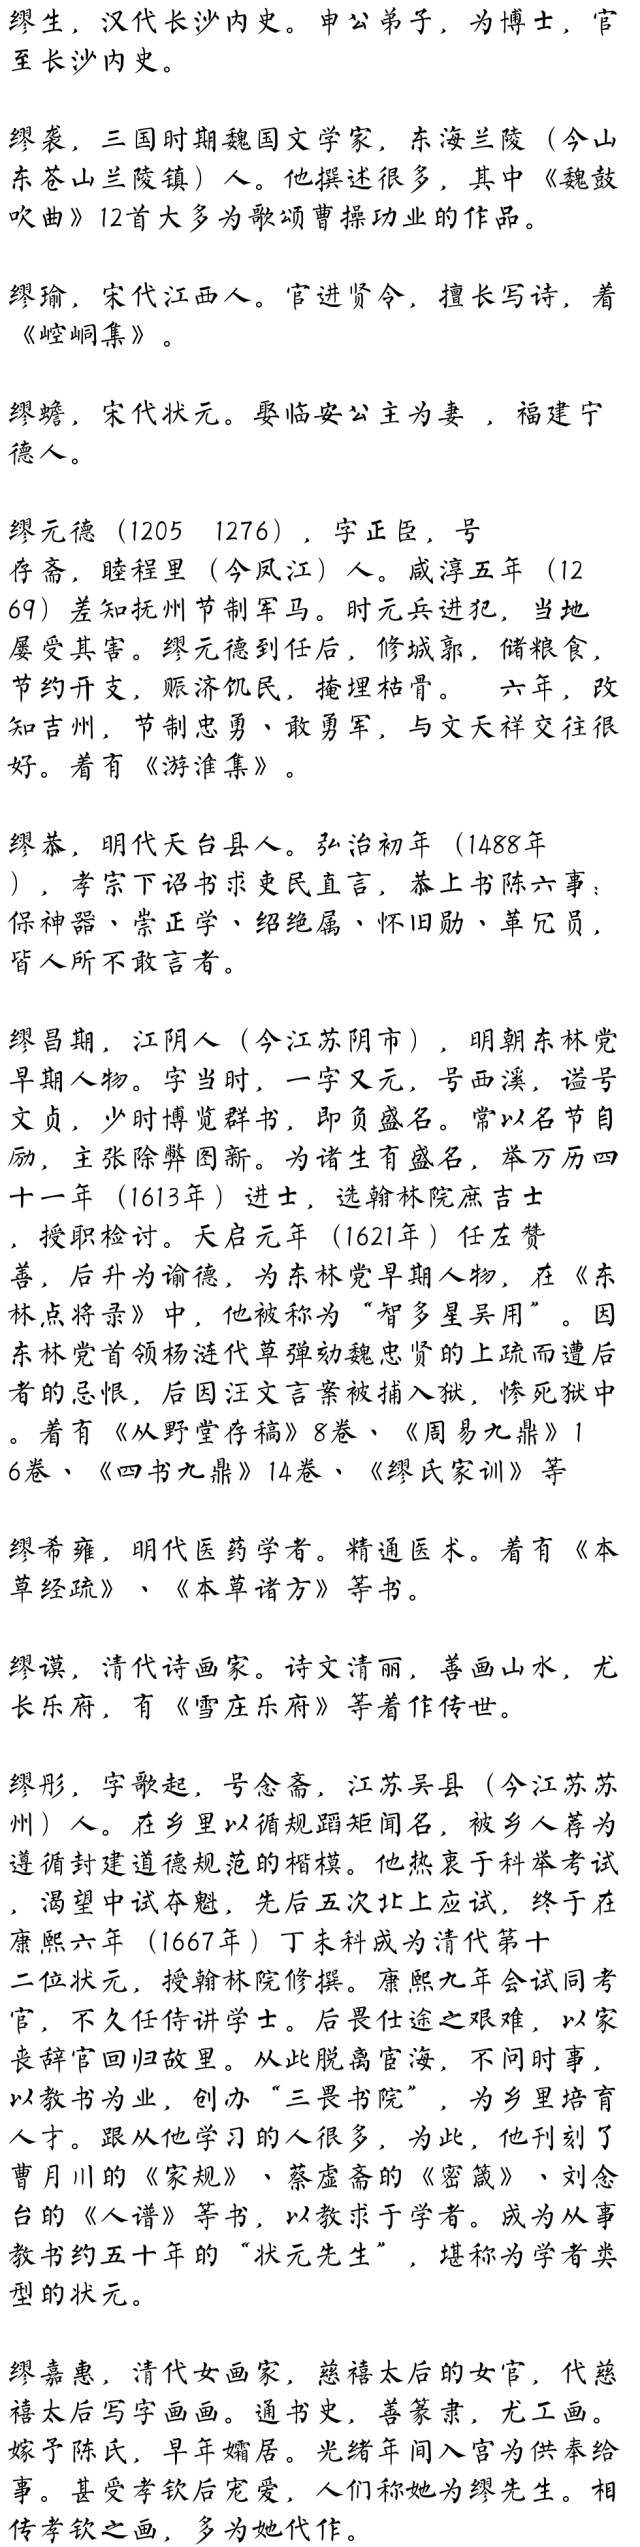 缪生，汉代长沙内史。申公弟子，为博士，官
至长沙内史。
缪袭，三国时期魏国文学家，东海兰陵（今山
东苍山兰陵镇）人。他撰述很多，其中《魏鼓
吹曲》12首大多为歌颂曹操功业的作品。
缪瑜，宋代江西人。官进贤令，擅长写诗，着
《崆峒集》。
缪蟾，宋代状元。娶临安公主为妻 ，福建宁
德人。
缪元德（1205　1276），字正臣，号
存斋，睦程里（今凤江）人。咸淳五年（12
69）差知抚州节制军马。时元兵进犯，当地
屡受其害。缪元德到任后，修城郭，储粮食，
节约开支，赈济饥民，掩埋枯骨。　六年，改
知吉州，节制忠勇、敢勇军，与文天祥交往很
好。着有《游淮集》。
缪恭，明代天台县人。弘治初年（1488年
），孝宗下诏书求吏民直言，恭上书陈六事：
保神器、崇正学、绍绝属、怀旧勋、革冗员，
皆人所不敢言者。
缪昌期，江阴人（今江苏阴市），明朝东林党
早期人物。字当时，一字又元，号西溪，谥号
文贞，少时博览群书，即负盛名。常以名节自
励，主张除弊图新。为诸生有盛名，举万历四
十一年（1613年）进士，选翰林院庶吉士
，授职检讨。天启元年（1621年）任左赞
善，后升为谕德，为东林党早期人物，在《东
林点将录》中，他被称为“智多星吴用”。因
东林党首领杨涟代草弹劾魏忠贤的上疏而遭后
者的忌恨，后因汪文言案被捕入狱，惨死狱中
。着有《从野堂存稿》8卷、《周易九鼎》1
6卷、《四书九鼎》14卷、《缪氏家训》等
缪希雍，明代医药学者。精通医术。着有《本
草经疏》、《本草诸方》等书。
缪谟，清代诗画家。诗文清丽，善画山水，尤
长乐府，有《雪庄乐府》等着作传世。
缪彤，字歌起，号念斋，江苏吴县（今江苏苏
州）人。在乡里以循规蹈矩闻名，被乡人荐为
遵循封建道德规范的楷模。他热衷于科举考试
，渴望中试夺魁，先后五次北上应试，终于在
康熙六年（1667年）丁未科成为清代第十
二位状元，授翰林院修撰。康熙九年会试同考
官，不久任侍讲学士。后畏仕途之艰难，以家
丧辞官回归故里。从此脱离宦海，不问时事，
以教书为业，创办“三畏书院”，为乡里培育
人才。跟从他学习的人很多，为此，他刊刻了
曹月川的《家规》、蔡虚斋的《密箴》、刘念
台的《人谱》等书，以教求于学者。成为从事
教书约五十年的“状元先生”，堪称为学者类
型的状元。
缪嘉惠，清代女画家，慈禧太后的女官，代慈
禧太后写字画画。通书史，善篆隶，尤工画。
嫁予陈氏，早年孀居。光绪年间入宫为供奉给
事。甚受孝钦后宠爱，人们称她为缪先生。相
传孝钦之画，多为她代作。